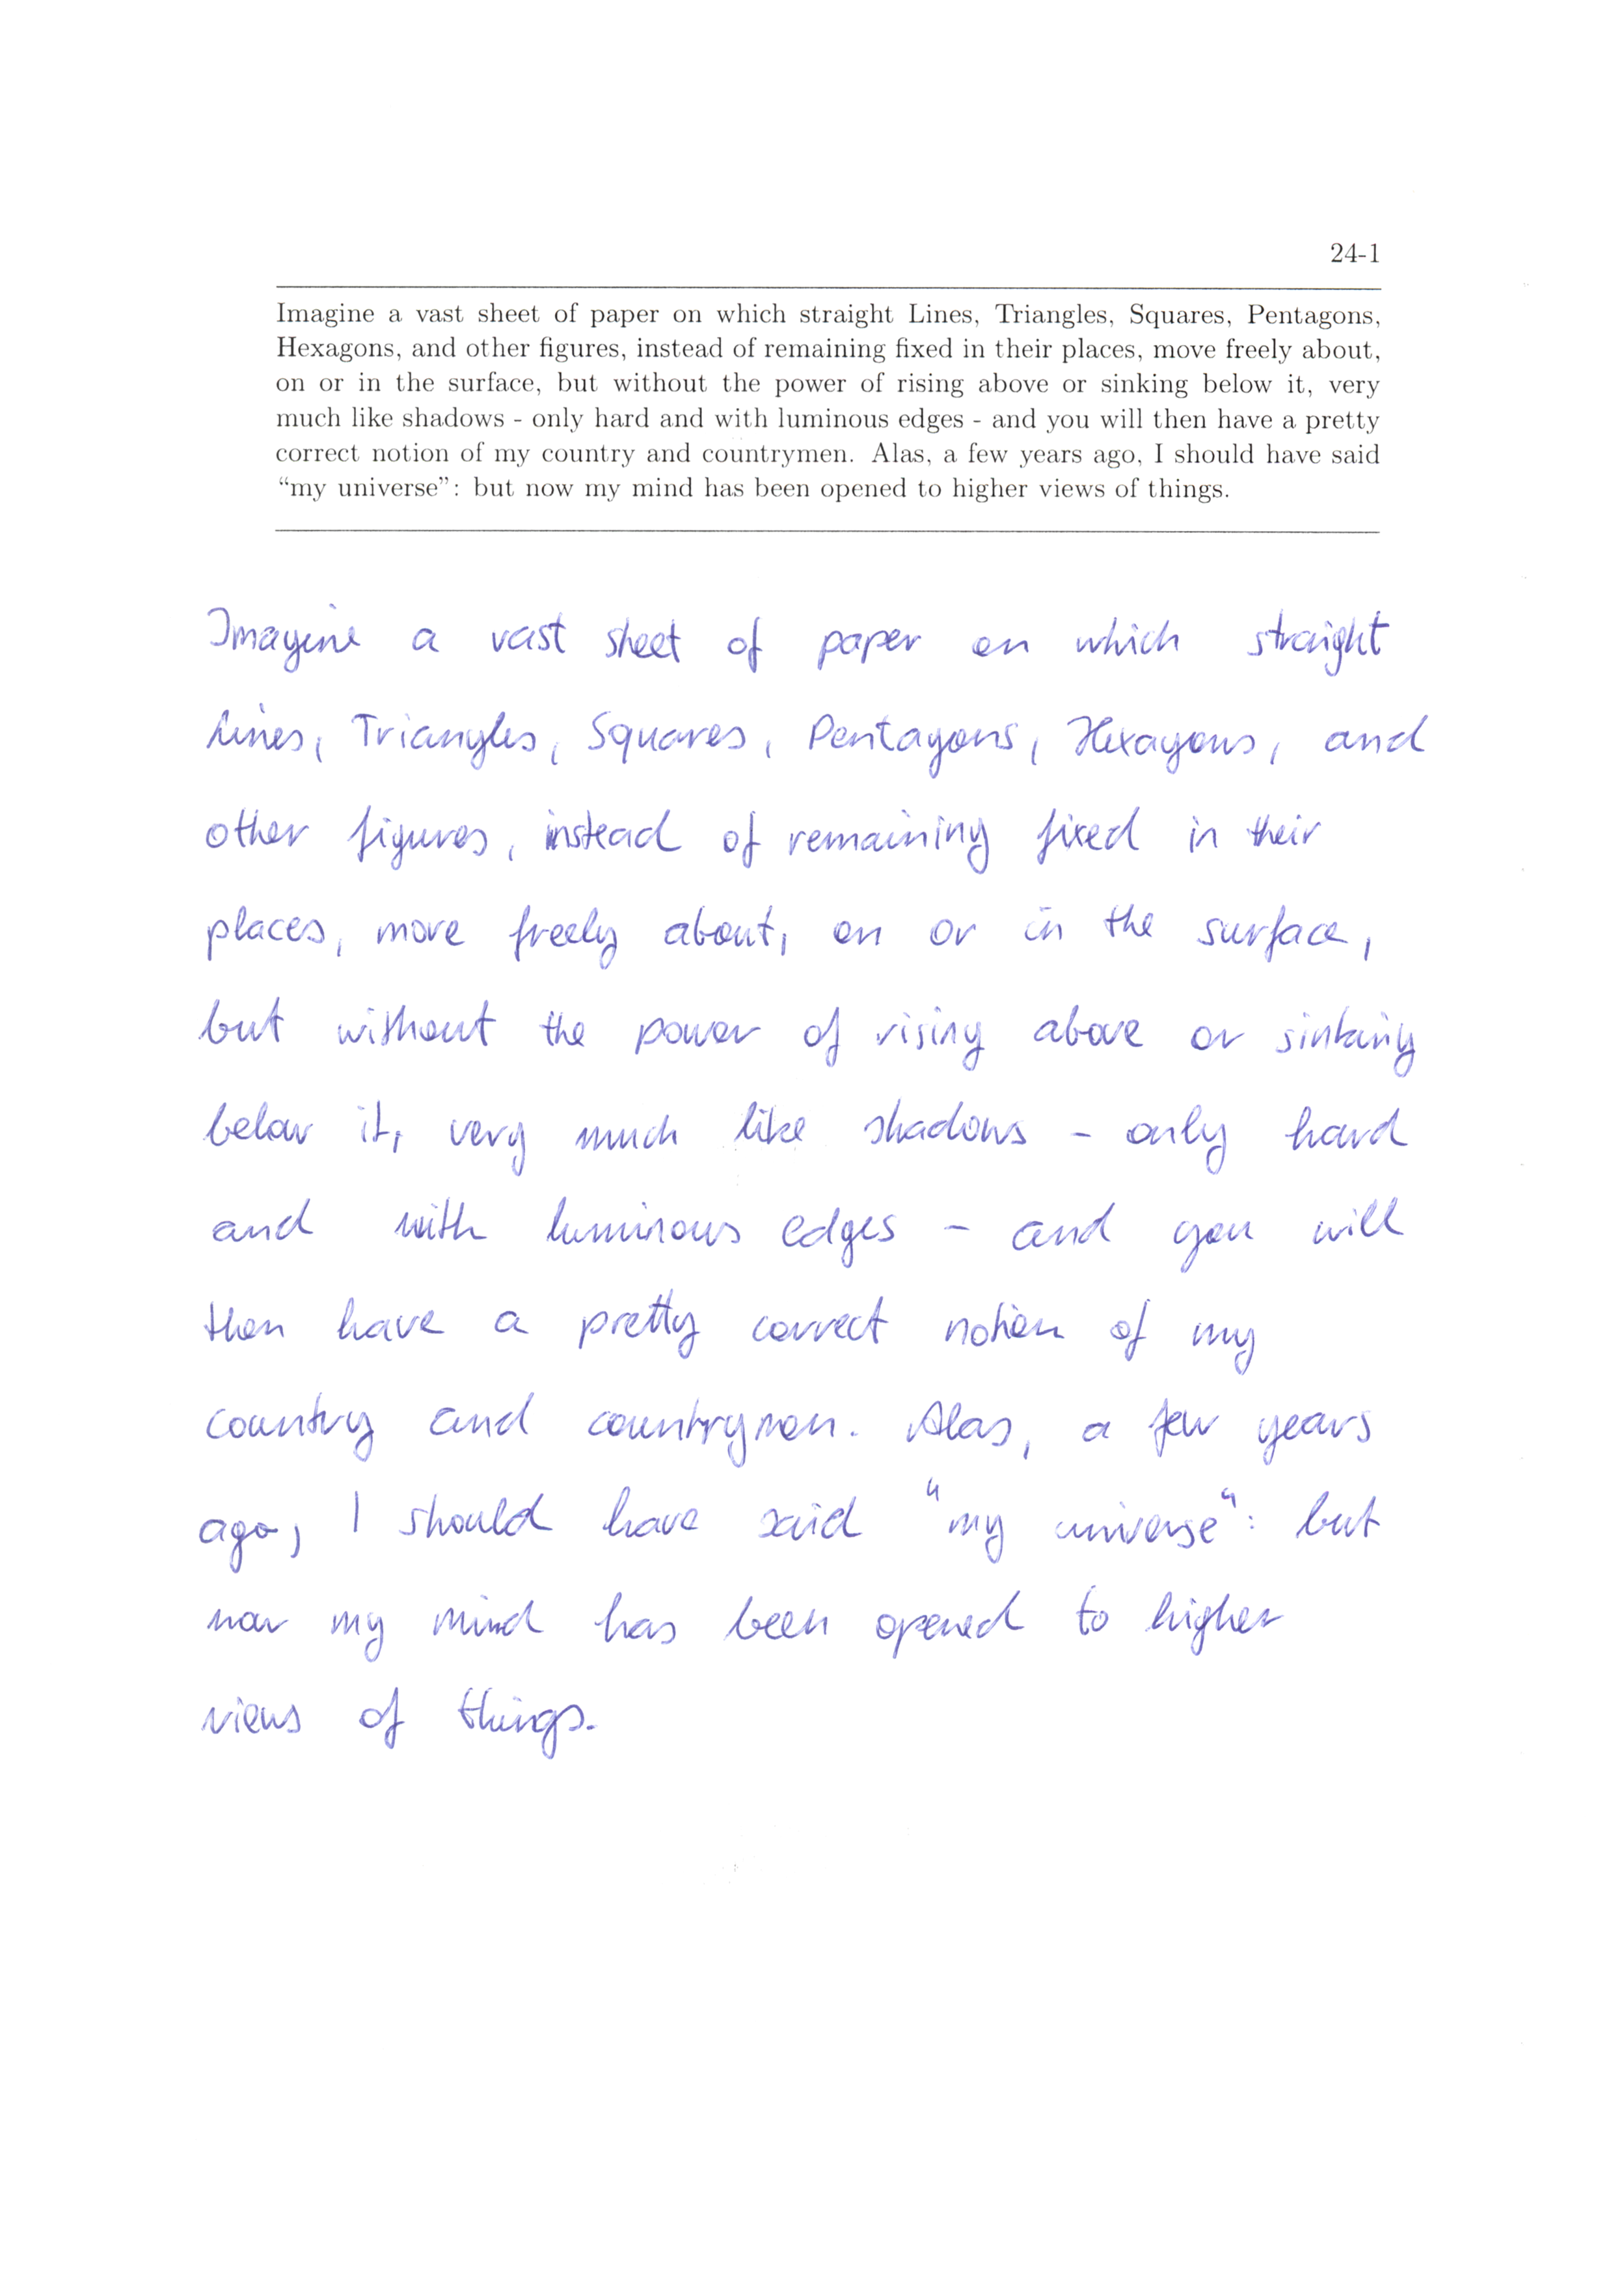 24-1
Imagine a vast sheet of paper on which straight Lines, Triangles, Squares, Pentagons,
Hexagons, and other figures, instead of remaining fixed in their places, move freely about,
on or in the surface, but without the power of rising above or sinking below it, very
much like shadows - only hard and with luminous edges - and you will then have a pretty
correct notion of my country and countrymen. Alas, a few years ago, I should have said
“my universe”: but now my mind has been opened to higher views of things.
Imagine a vast sheet of paper on which straight
Lines, Triangles, Squares, Pentagons, Hexagons, and
other figures, instead of remaining fixed in their
places, move freely about, on or in the surface,
but without the power of rising above or sinking
below it, very much like shadows - only hard
and with luminous edges - and you will
then have a pretty correct notion of my
country and countrymen. Alas, a few years
ago, I should have said “my universe“: but
now my mind has been opened to higher
views of things.